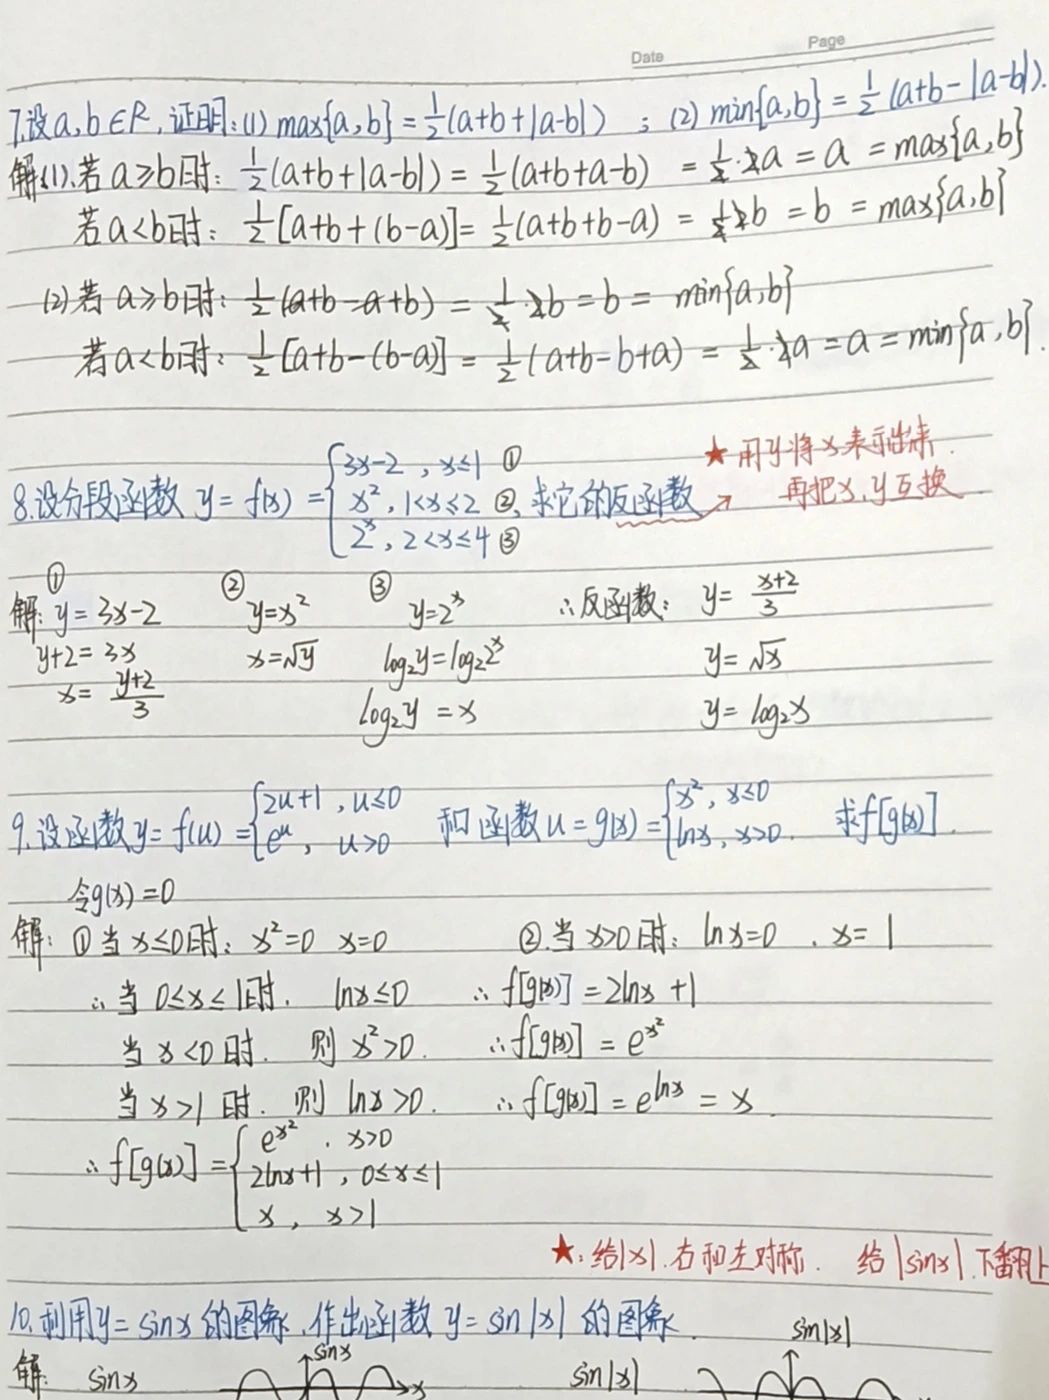 Date Page
7.设a,b∈R,证明:(1) max{a,b}=½(a+b+|a-b|) ; (2) min{a,b}=½(a+b-|a-b|).
解:(1).若a≥b时: ½(a+b+|a-b|)=½(a+b+a-b) =½·2a=a=max{a,b}
若a<b时: ½[a+b+(b-a)]=½(a+b+b-a)=½2b=b=max{a,b}
(2)若a≥b时: ½(a+b-a+b)=½·2b=b=min{a,b}
若a<b时: ½[a+b-(b-a)]=½(a+b-b+a)=½·2a=a=min{a,b}.
★用y将x表示出来.
再把x,y互换
8.设分段函数 y=f(x)={3x-2, x≤1 ①
x², 1<x≤2 ②, 求它的反函数→
2ˣ, 2<x≤4 ③
① ② ③
解: y=3x-2 y=x² y=2ˣ ∴反函数: y=(x+2)/3
y+2=3x x=√y log₂y=log₂2ˣ y=√x
x=(y+2)/3 log₂y=x y=log₂x
9.设函数y=f(u)={2u+1, u≤0 和函数u=g(x)={x², x≤0 求f[g(x)].
eᵘ, u>0 lnx, x>0.
令g(x)=0
解: ①当x≤0时: x²=0 x=0 ②.当x>0时: lnx=0 . x=1
∴当 0≤x≤1时. lnx≤0 ∴f[g(x)]=2lnx+1
当x<0时. 则x²>0. ∴f[g(x)]=e^x²
当x>1时. 则lnx>0. ∴f[g(x)]=e^lnx=x.
∴f[g(x)]={e^x² . x>0
2lnx+1, 0≤x≤1
x, x>1
★:给|x|.右和左对称. 给|sinx|.下翻上
10.利用y=sinx的图象,作出函数y=sin|x|的图象.
解: sinx sinx x sin|x| sin|x|